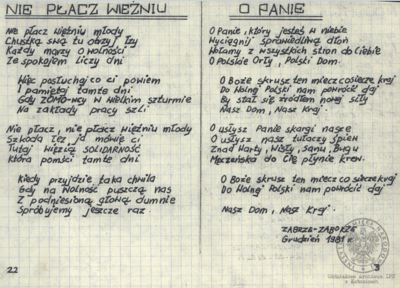 NIE PŁACZ WIĘŹNIU
Nie płacz więźniu młody
Chustką swą tu obrzyj łzy
Każdy marzy o wolności
Ze spokojem liczy dni
Więc posłuchaj co ci powiem
I pamiętaj tamte dni
Gdy ZOMO-wcy w wielkim szturmie
Na zakłady pracy szli
Nie płacz, nie płacz więźniu młody
Szkoda łez ja mówię ci
Tutaj więżą SOLIDARNOŚĆ
Która pomści tamte dni
Kiedy przyjdzie taka chwila
Gdy na wolność puszczą nas
Z podniesioną głową dumnie
Spróbujemy jeszcze raz.
22
O PANIE
O Panie, który jesteś w niebie
Wyciągnij sprawiedliwą dłoń
Wołamy z wszystkich stron do Ciebie
O Polskie Orły, Polski Dom.
O Boże skrusz ten miecz co siecze kraj
Do Wolnej Polski nam powrócić daj
By stał się źródłem nowej siły
Nasz Dom, Nasz Kraj.
O usłysz Panie skargi nasze
O usłysz nasz tułaczy śpiew
Znad Warty, Wisły, Sanu, Bugu
Męczeńska do Cię płynie krew.
O Boże skrusz ten miecz co siecze kraj
Do Wolnej Polski nam powrócić daj
Nasz Dom, Nasz Kraj.
ZABRZE-ZABORZE
Grudzień 1981 r.
3